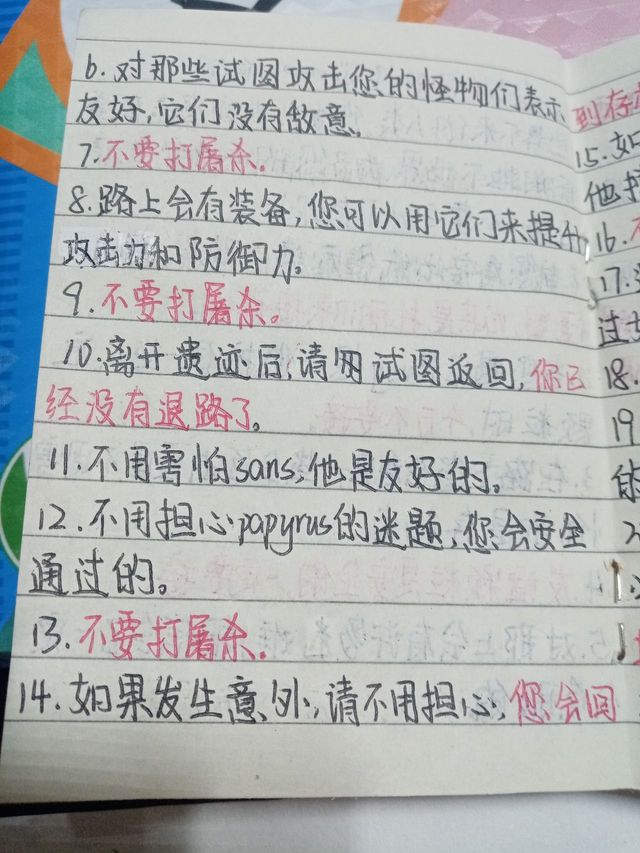 6.对那些试图攻击您的怪物们表示
友好,它们没有敌意。
7.不要打屠杀。
8.路上会有装备,您可以用它们来提升
攻击力和防御力。
9.不要打屠杀。
10.离开遗迹后,请勿试图返回,你已
经没有退路了。
11.不用害怕sans,他是友好的。
12.不用担心papyrus的迷题,您会安全
通过的。
13.不要打屠杀。
14.如果发生意外,请不用担心,您会回
到存
15.如
他
16.
17.
过
18.
19.
的